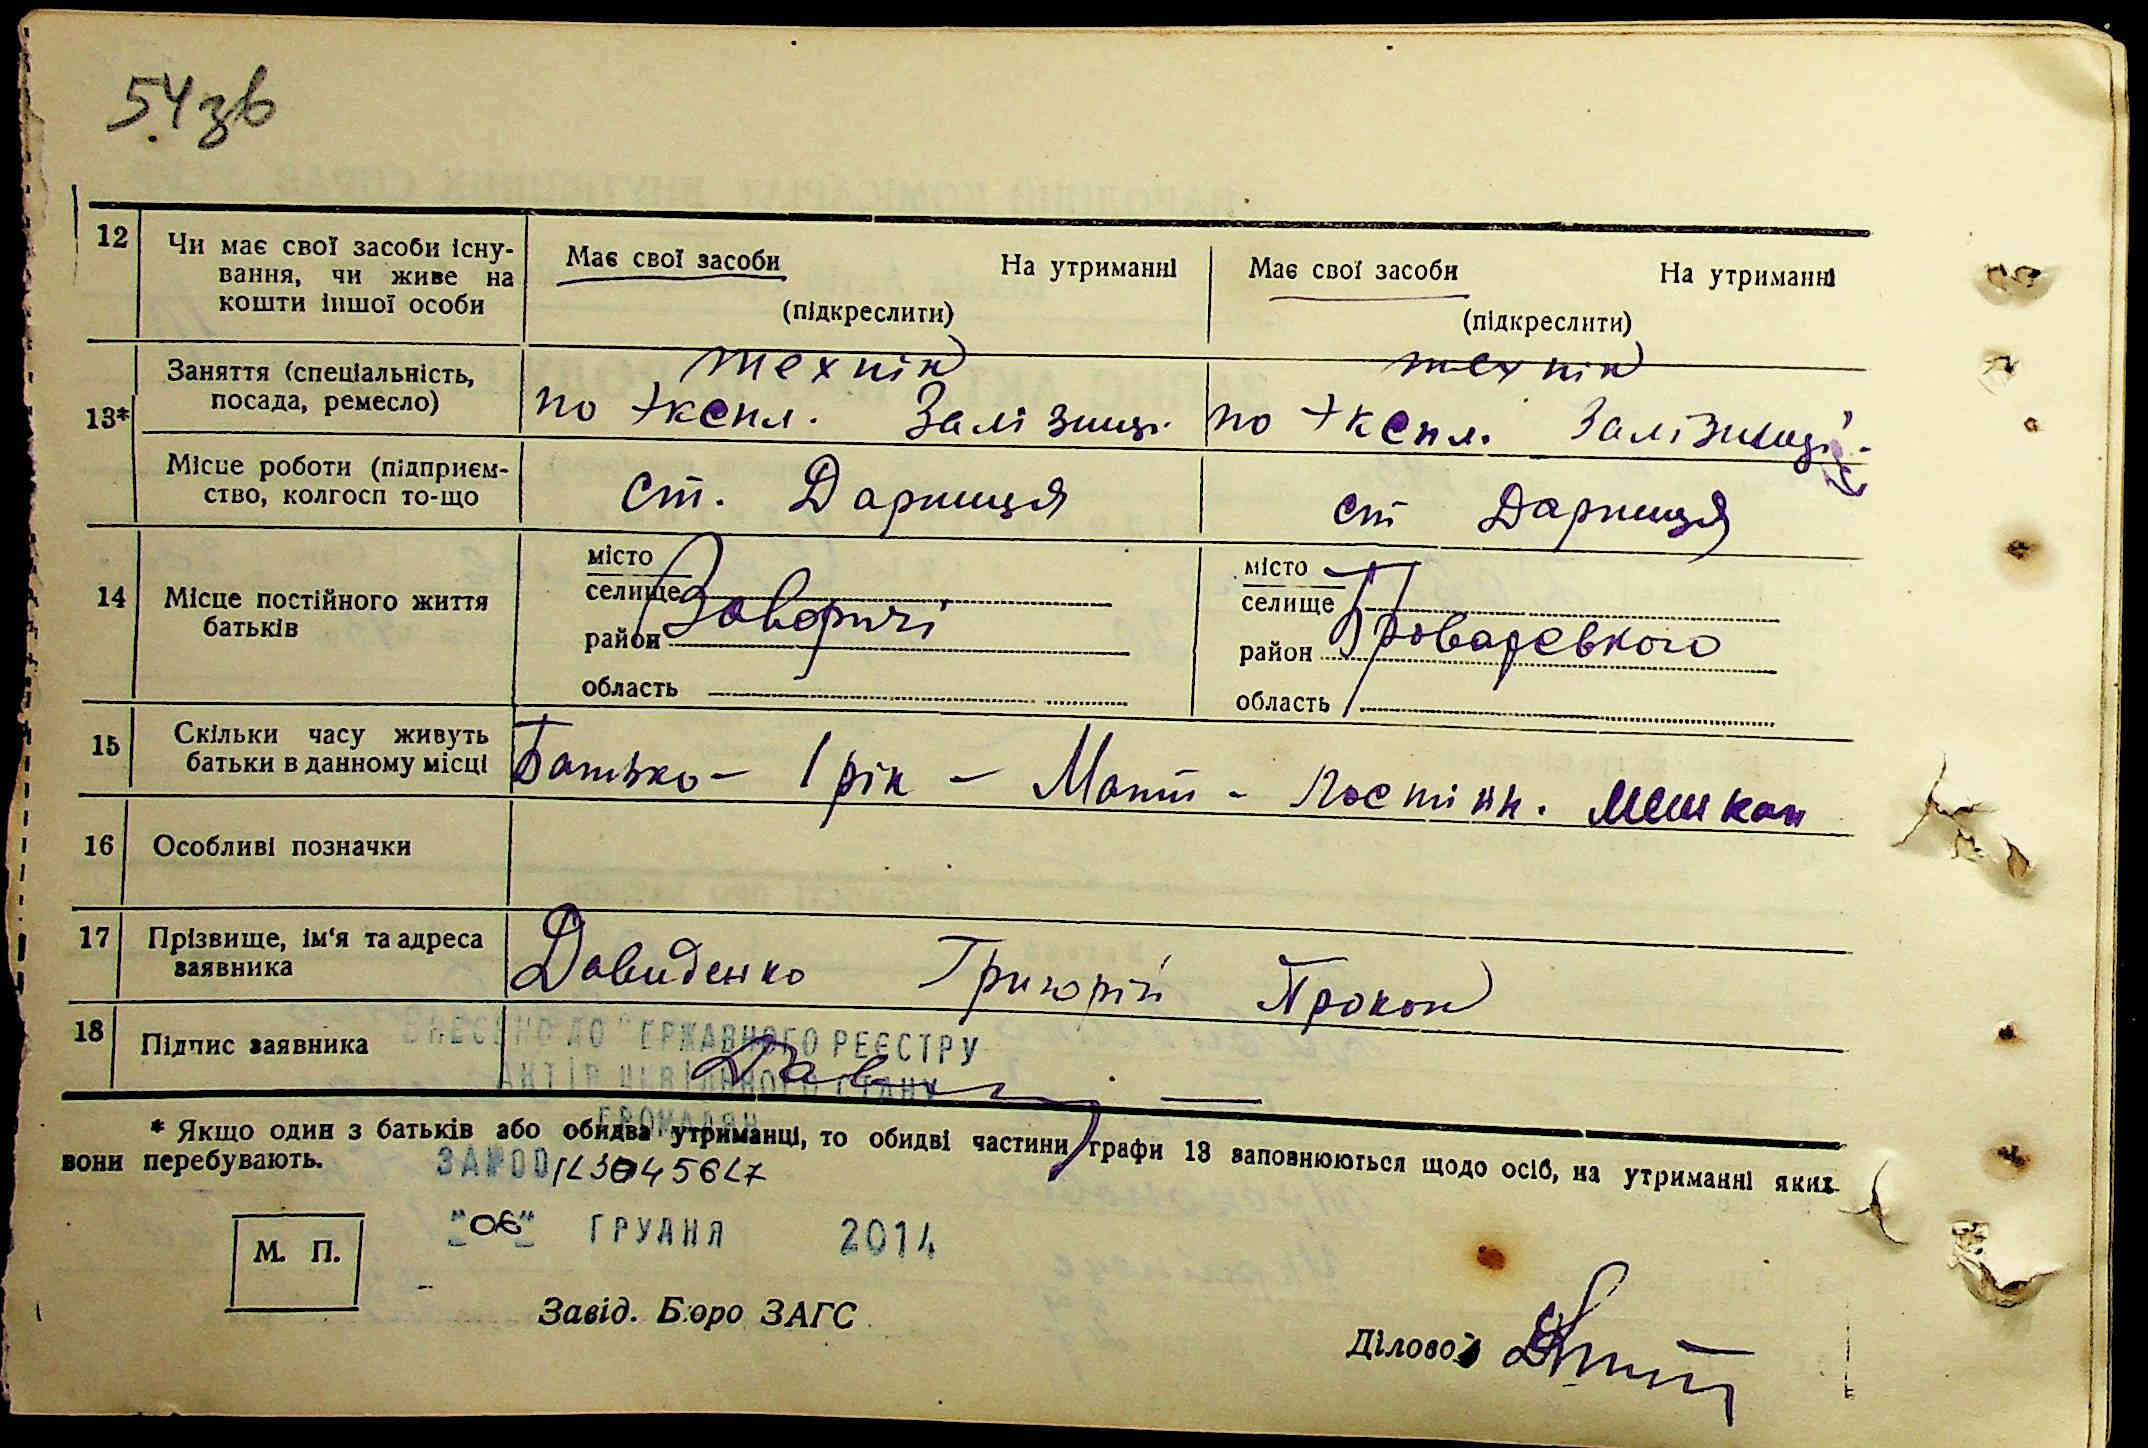 54зв
12 Чи має свої засоби існу-
вання, чи живе на
кошти іншої особи
Має свої засоби На утриманні
(підкреслити)
Має свої засоби На утриманні
(підкреслити)
13* Заняття (спеціальність,
посада, ремесло)
технік
по Экспл. Залізниці.
технік
по Экспл. Залізниці.
Місце роботи (підприєм-
ство, колгосп то-що
ст. Дарниця
ст Дарниця
14 Місце постійного життя
батьків
місто
селище
район Заворичі
область
місто
селище
район Броварського
область
15 Скільки часу живуть
батьки в данному місці
Батько - 1 рік - Мати - Постійн. мешкан
16 Особливі позначки
17 Прізвище, ім'я та адреса
заявника
Давиденко Григорій Прокоп
18 Підпис заявника
ВНЕСЕНО ДО ДЕРЖАВНОГО РЕЄСТРУ
АКТІВ ЦИВІЛЬНОГО СТАНУ
ГРОМАДЯН
* Якщо один з батьків або обидва утриманці, то обидві частини графи 13 заповнюються щодо осіб, на утриманні яких
вони перебувають.
ЗА №00
"06" ГРУДНЯ 2014
М. П.
Завід. Бюро ЗАГС
Діловод